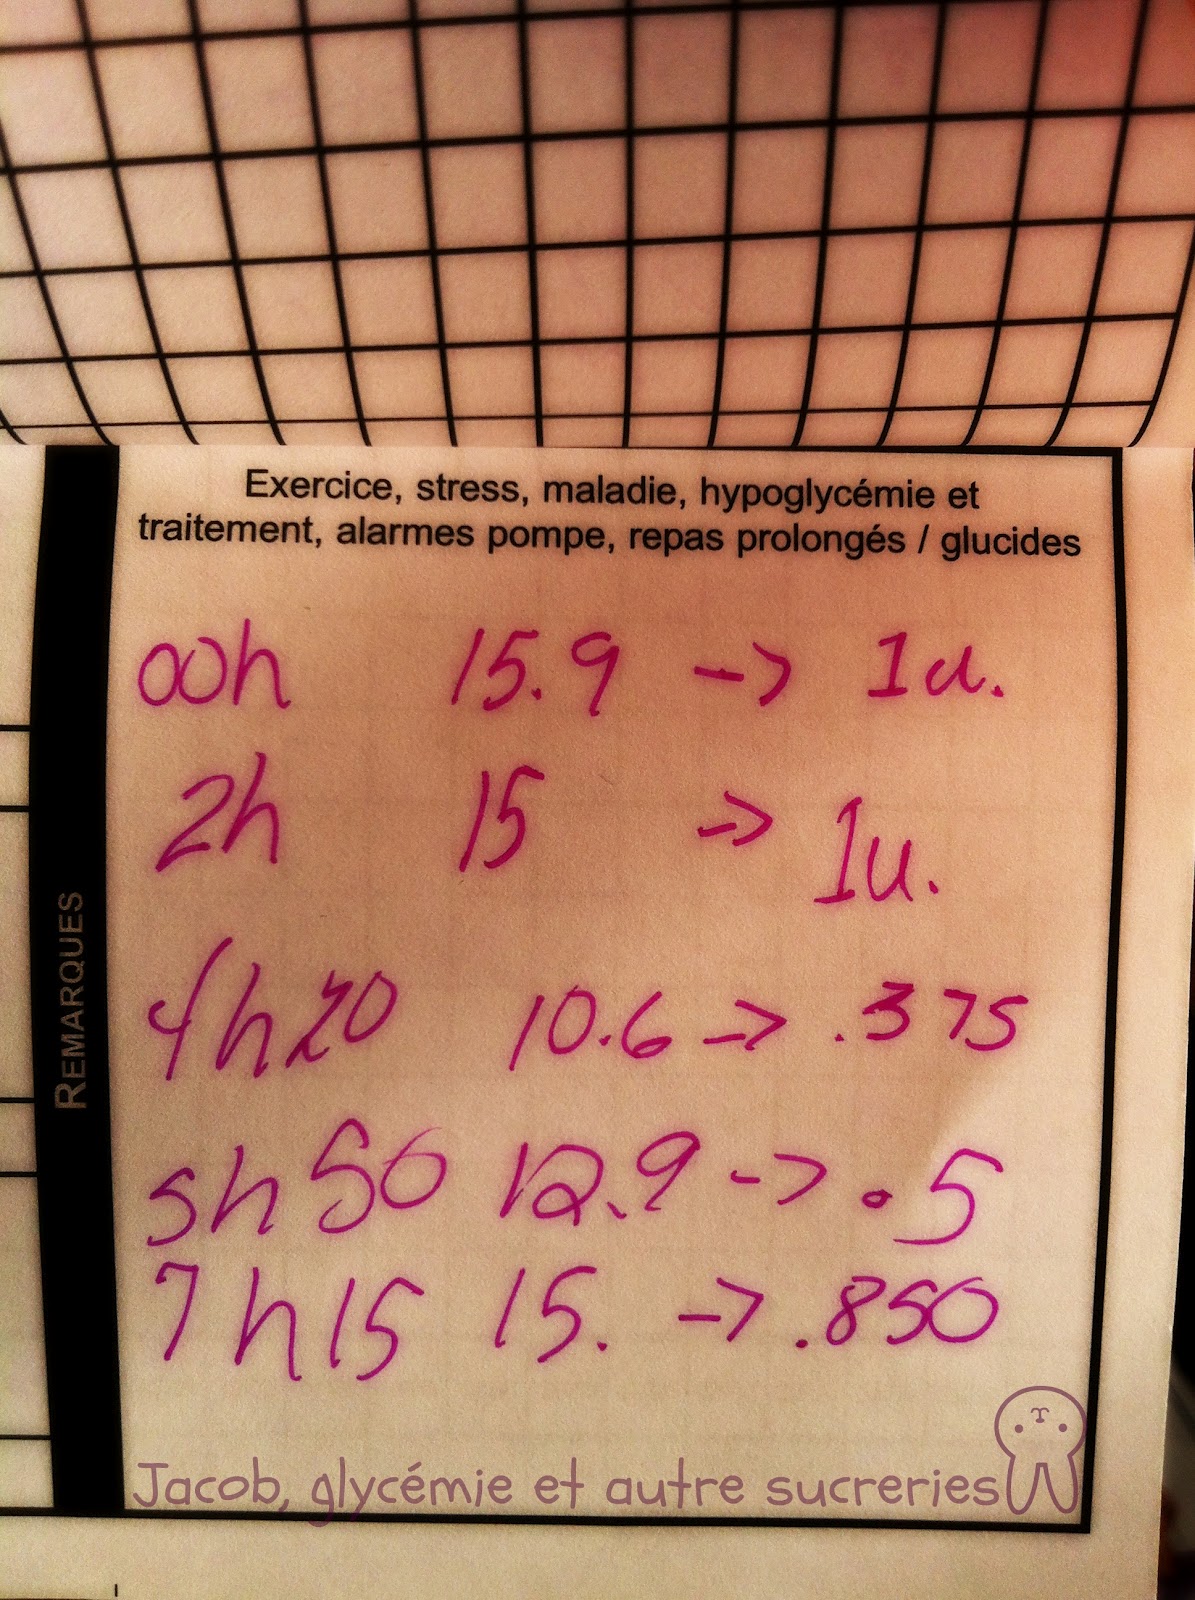 Exercice, stress, maladie, hypoglycémie et
traitement, alarmes pompe, repas prolongés / glucides
REMARQUES
00h 15.9 -> 1u.
2h 15 -> 1u.
4h20 10.6 -> .375
5h50 12.9 -> .5
7h15 15. -> .850
Jacob, glycémie et autre sucreries